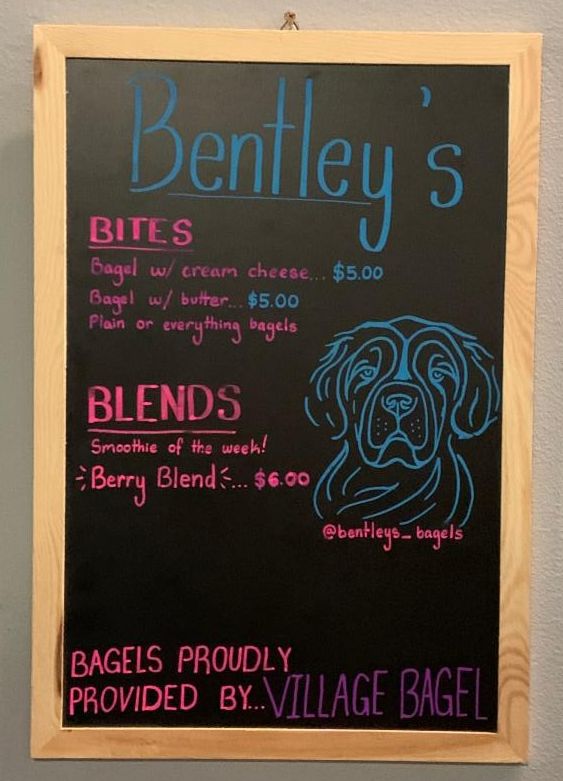 Bentley's
BITES
Bagel w/ cream cheese... $5.00
Bagel w/ butter... $5.00
Plain or everything bagels
BLENDS
Smoothie of the week!
Berry Blend... $6.00
@bentleys_bagels
BAGELS PROUDLY
PROVIDED BY... VILLAGE BAGEL